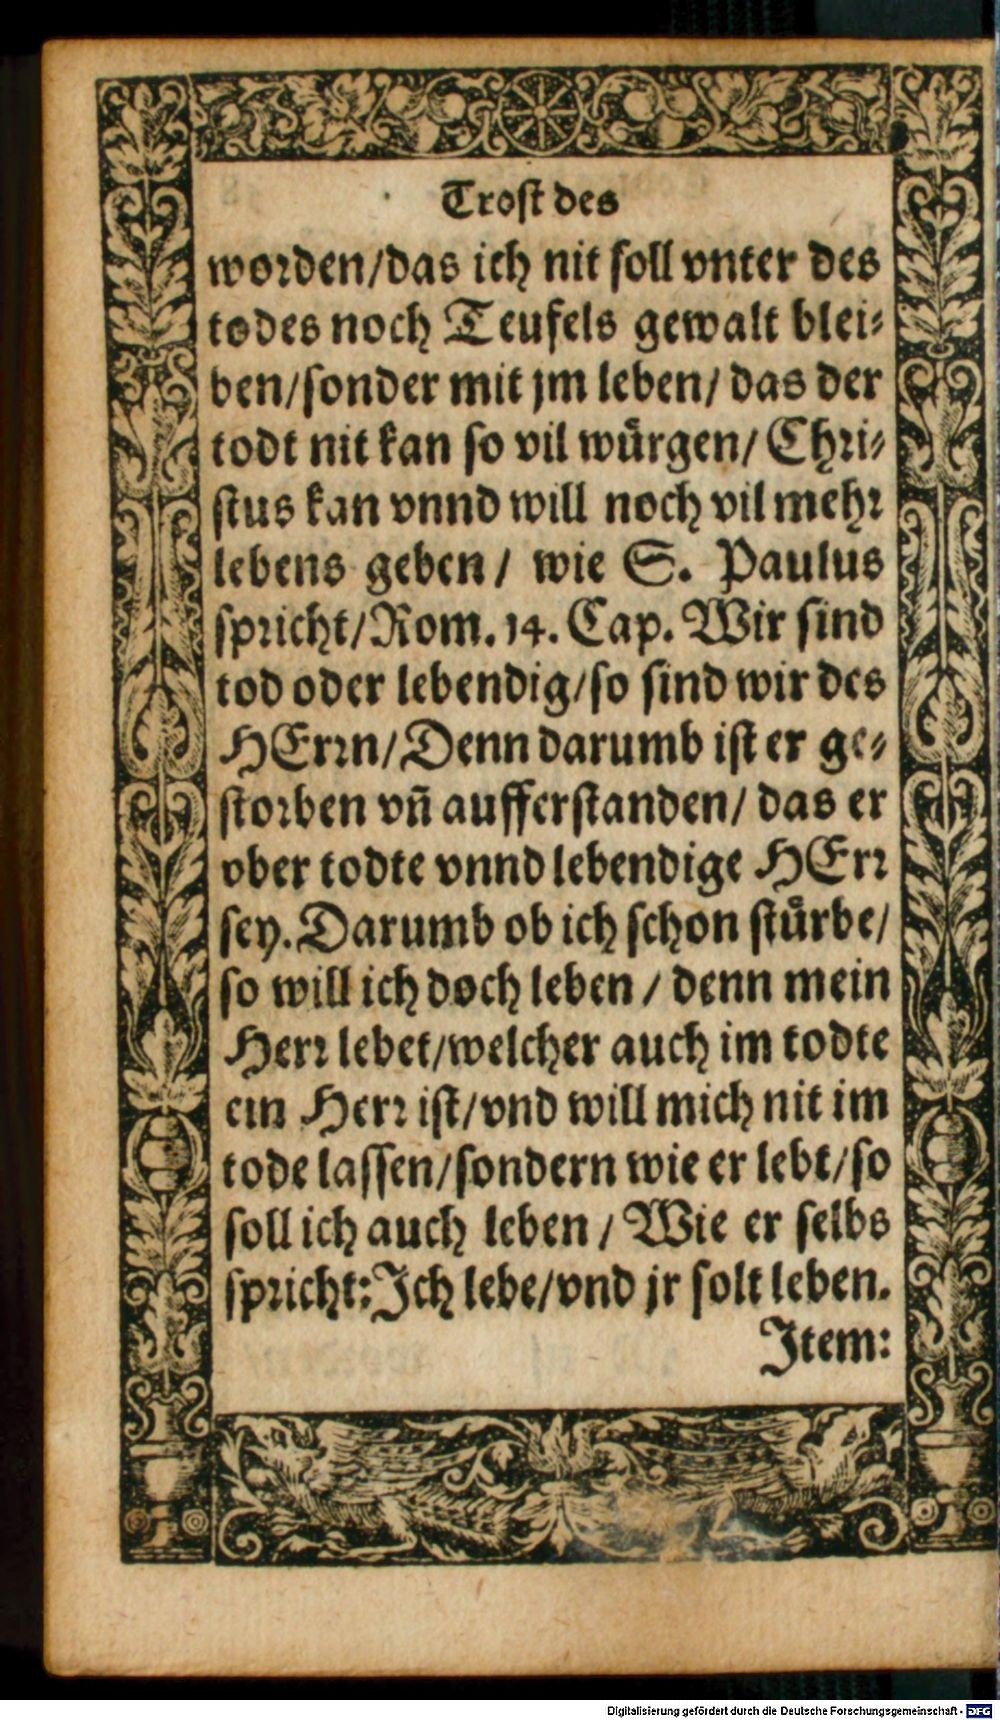 Trost des
worden/das ich nit soll vnter des
todes noch Teufels gewalt blei⸗
ben/sonder mit jm leben/ das der
todt nit kan so vil wuͤrgen/ Chri⸗
stus kan vnnd will noch vil mehr
lebens geben / wie S. Paulus
spricht/Rom. 14. Cap. Wir sind
tod oder lebendig/so sind wir des
HErrn/Denn darumb ist er ge⸗
storben vñ aufferstanden/ das er
vber todte vnnd lebendige HErr
sey. Darumb ob ich schon stuͤrbe/
so will ich doch leben / denn mein
Herr lebet/welcher auch im todte
ein Herr ist/vnd will mich nit im
tode lassen/sondern wie er lebt/so
soll ich auch leben / Wie er selbs
spricht: Ich lebe/vnd jr solt leben.
Item:
Digitalisierung gefördert durch die Deutsche Forschungsgemeinschaft - DFG